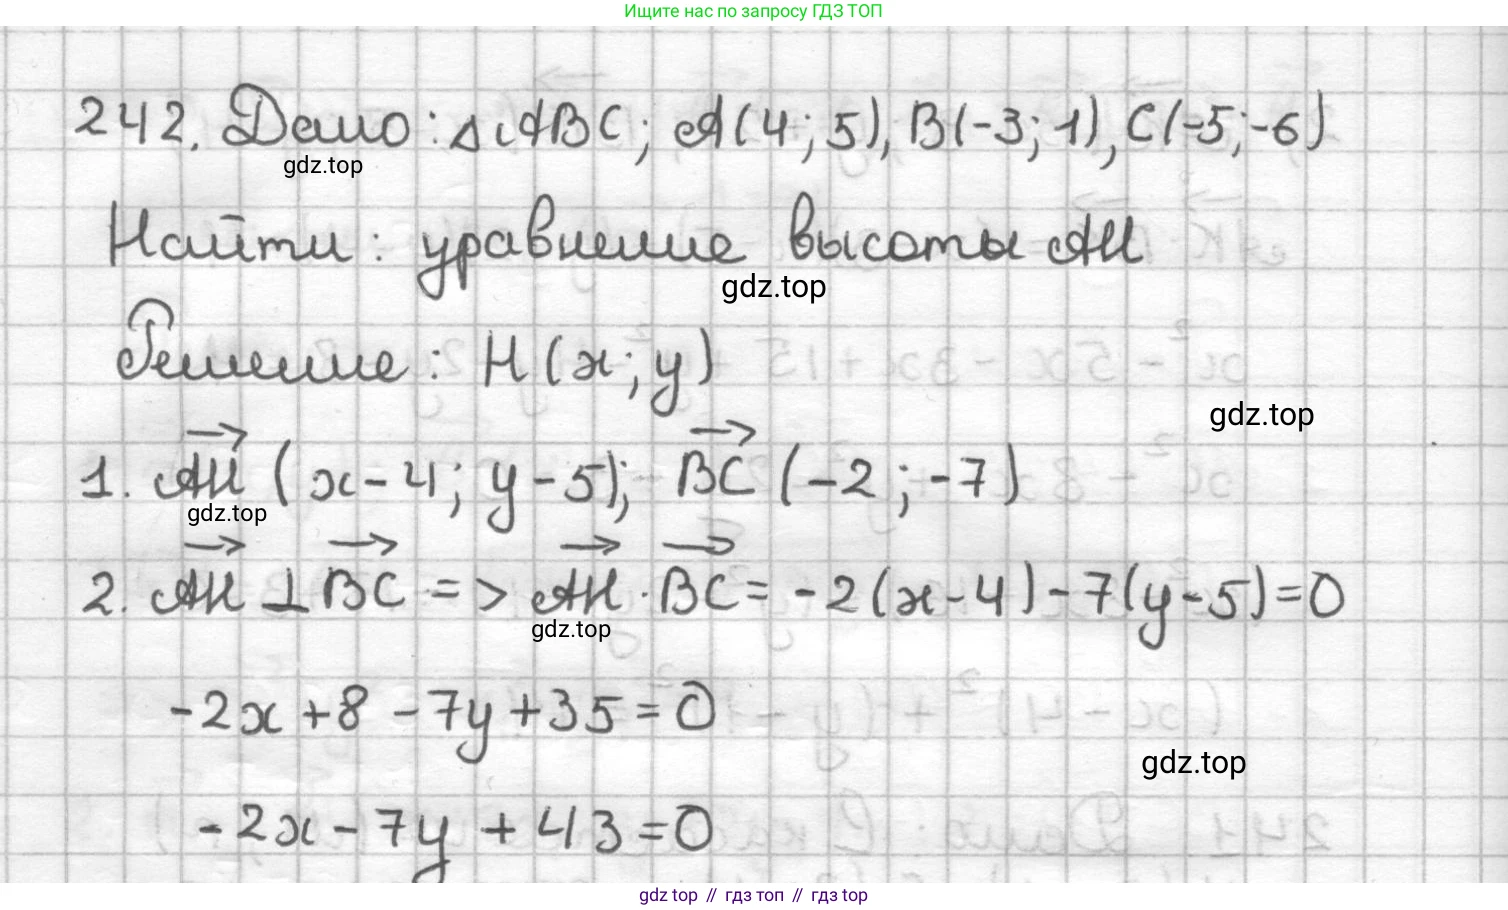 Ищите нас по запросу ГДЗ ТОП
242. Дано: △ABC; A(4; 5), B(-3; 1), C(-5; -6)
gdz.top
Найти: уравнение высоты AH
gdz.top
Решение: H(x; y)
gdz.top
1. AH→ (x-4; y-5); BC→ (-2; -7)
gdz.top
2. AH→ ⊥ BC→ => AH→ · BC→ = -2(x-4) -7(y-5) = 0
gdz.top
-2x + 8 - 7y + 35 = 0
gdz.top
-2x - 7y + 43 = 0
gdz.top // гдз топ // гдз top